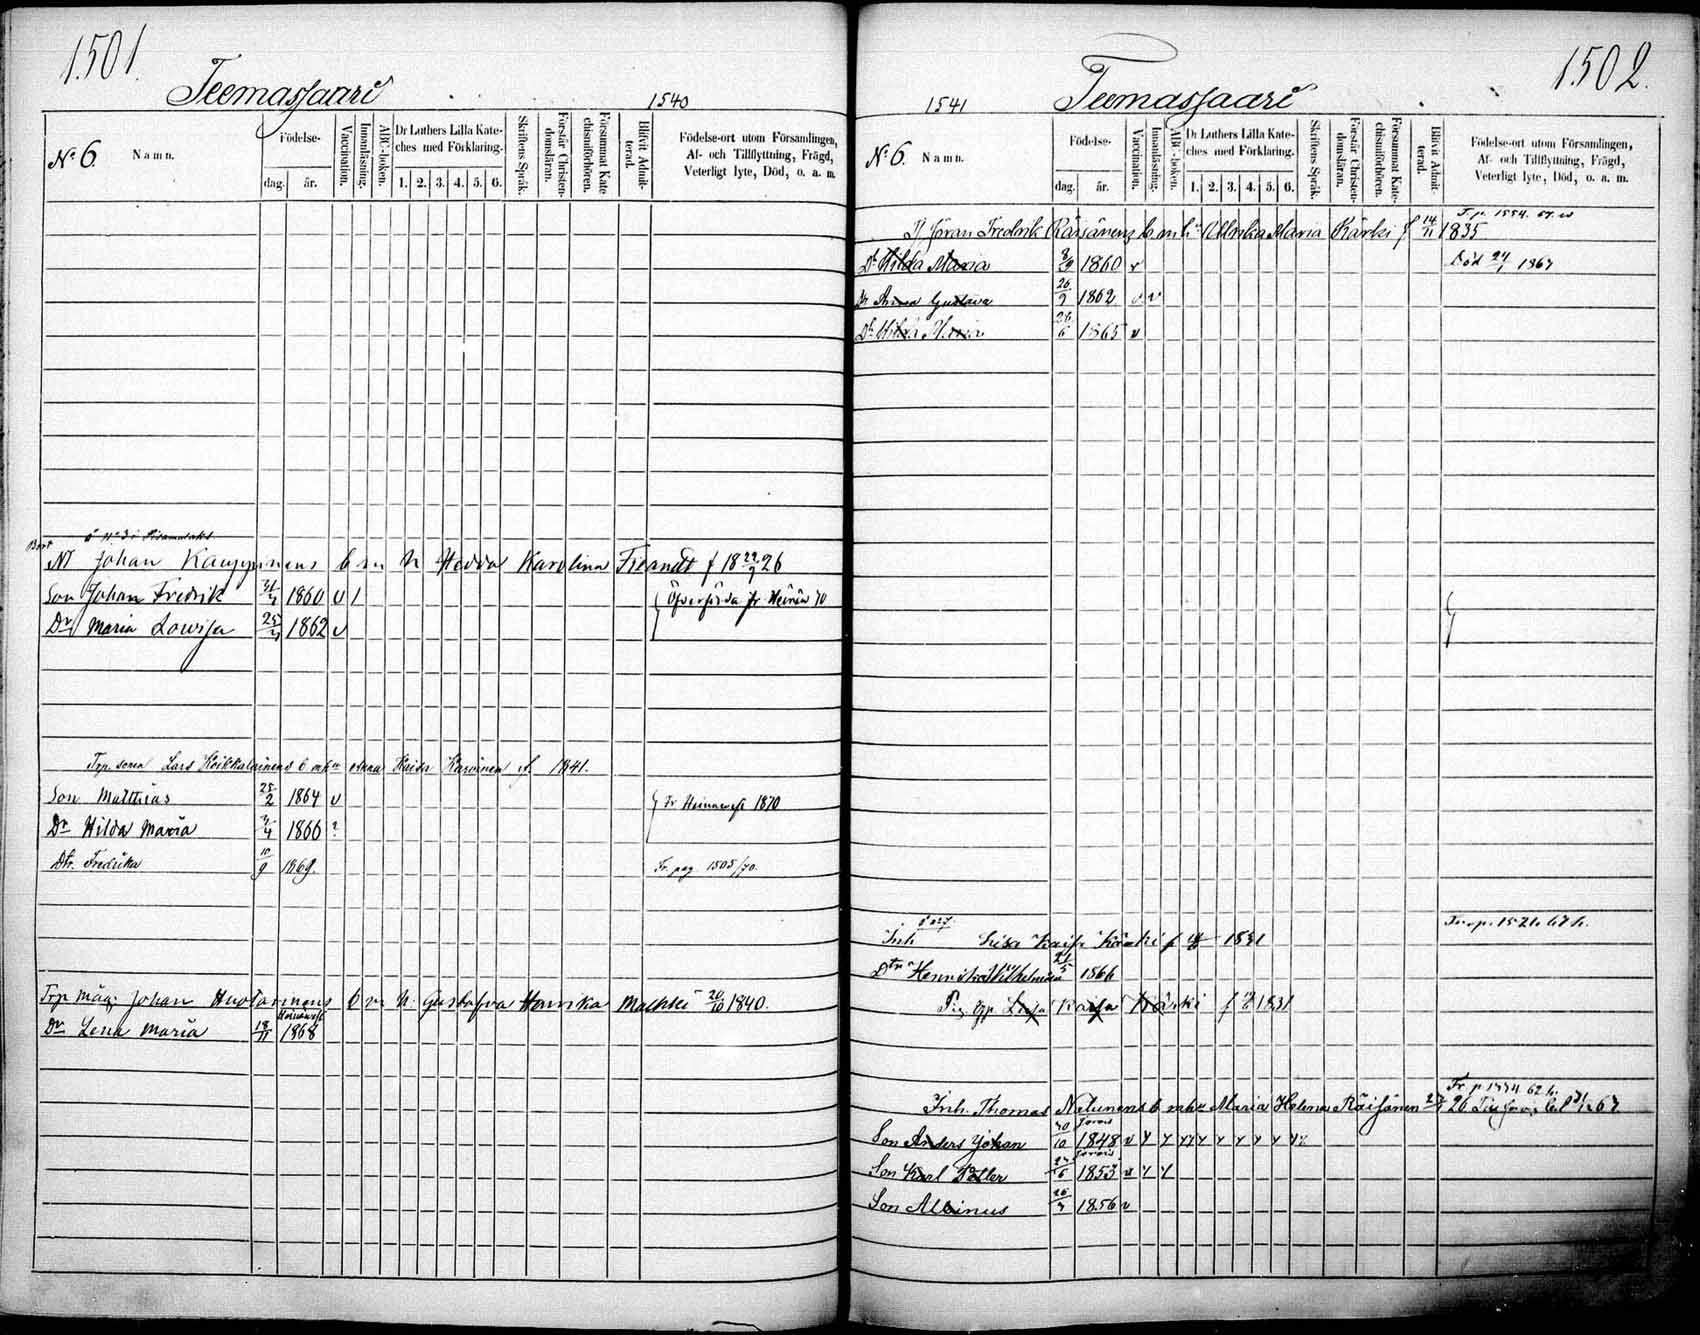 1501.
Teemassaari
1540
Nº 6.
Namn.
Födelse-
dag.
år.
Vaccination.
Innanläsning.
ABC-boken.
Dr Luthers Lilla Kate-
ches med Förklaring.
1. 2. 3. 4. 5. 6.
Skriftens Språk.
Förstår Christen-
domsläran.
Försummat Kate
chismiförhören.
Blifvit Admit-
terad.
Födelse-ort utom Församlingen,
Af- och Tillflyttning, Frägd,
Veterligt lyte, Död, o. a. m.
Bort
Johan Kauppinens b m h Hedda Karolina Fieandt f 18 29/9 26
Son Johan Fredrik 1860 v 1 Öfverförda fr Heinäv 70
Dr Maria Lowisa 1862 v
Trp sonen Lars Koikkalainens b m hu Anna Kaisa Karvinen f. 1841.
Son Matthias 25/2 1864 v fr Heinäwesi 1870
Dr Hilda Maria 1866 ?
Dtr. Fredrika 10/9 1869. Fr. pag 1505/70.
Trp måg: Johan Huotarinens b m h. Gustafva Henrika 20/10 1840.
Heinäwesi
Dr Lena Maria 18/11 1868
1502.
1541
Teemassaari
Nº 6.
Namn.
Födelse-
dag.
år.
Vaccination.
Innanläsning.
ABC-boken.
Dr Luthers Lilla Kate-
ches med Förklaring.
1. 2. 3. 4. 5. 6.
Skriftens Språk.
Förstår Christen-
domsläran.
Försummat Kate-
chismiförhören.
Blifvit Admit-
terad.
Födelse-ort utom Församlingen,
Af- och Tillflyttning, Frägd,
Veterligt lyte, Död, o. a. m.
Göran Fredrik Räisänens b m h Ulrika Maria Kärki f 14/11 1835
Dr Hilda Maria 1860 v Död 24/1 1867
Dr Anna Gustava 26/9 1862 v v
Dr Hilda Maria 26/6 1865 v
Inh Lisa Kaisa Kärki f 1831
Dtr Henrika Wilhelmina 1866
Lisa Kaisa Kärki f 1831
Inh. Thomas Natunens b m hu Maria Helena Räisänen 26
Jorois
Son Anders Johan 1848 v
Jorois
Son Karl 1853 v
Son Albinus 1856 v